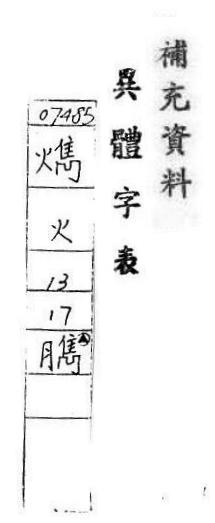 補充資料
異體字表
07485
燇
火
13
17
臇Ⓐ